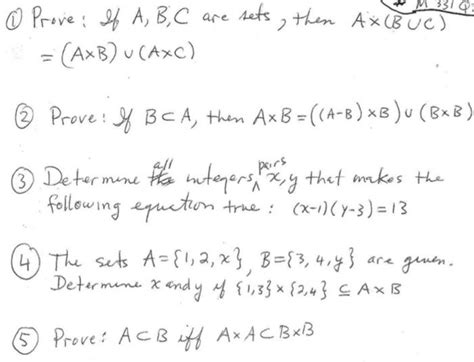 M 331 Q
① Prove: If A, B, C are sets, then A×(B∪C)
= (A×B) ∪ (A×C)
② Prove: If B⊂A, then A×B = ((A-B)×B) ∪ (B×B)
③ Determine all integers pairs x,y that makes the
following equation true: (x-1)(y-3)=13
④ The sets A={1,2,x}, B={3,4,y} are given.
Determine x and y if {1,3}×{2,4} ⊆ A×B
⑤ Prove: A⊂B iff A×A⊂B×B